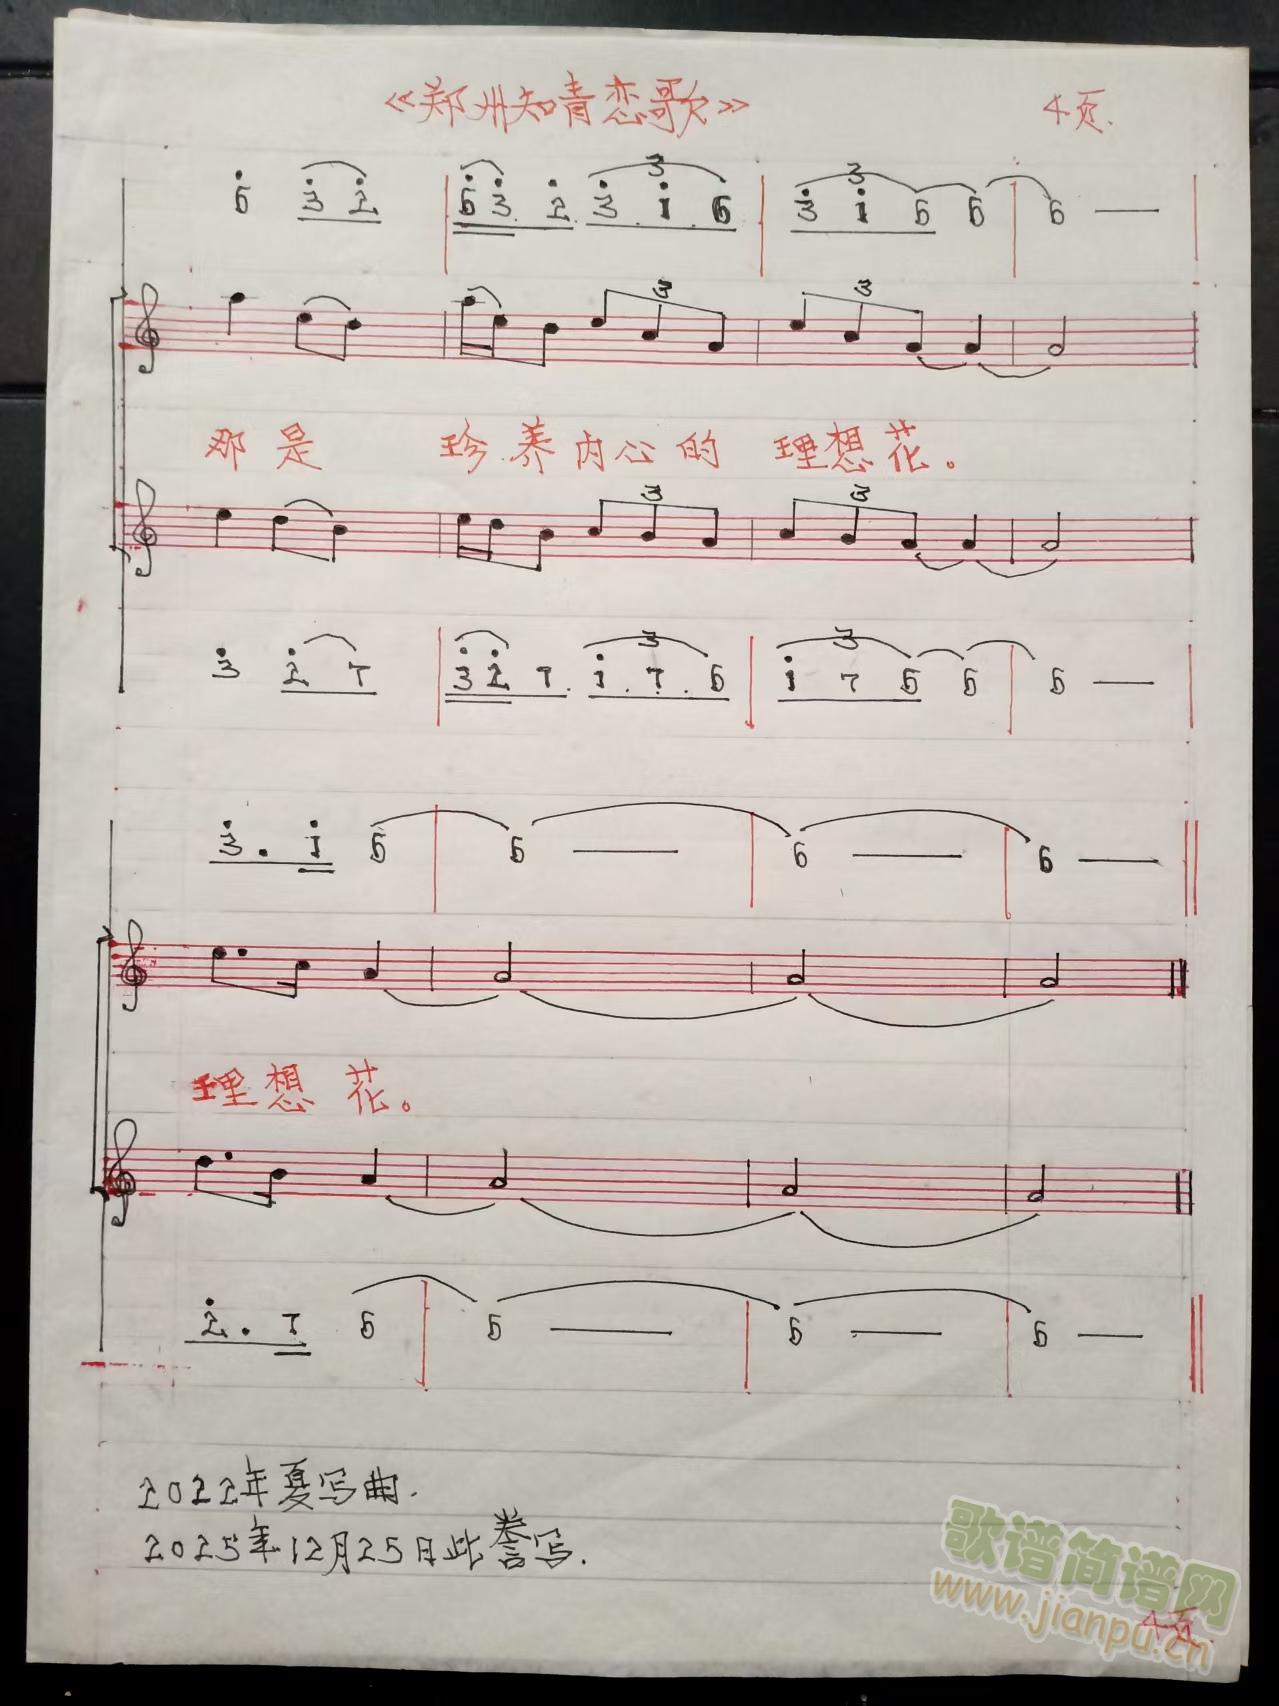 《郑州知青恋歌》 4页.
5 3 2 5 3 2 3 1 6 3 1 6 6 6 —
3 3
3 3
那是 珍养内心的 理想花。
3 3
3 2 7 3 2 7 1 7 6 1 7 6 6 6 —
3 3
3. 1 6 6 — 6 — 6 —
理想 花。
2. 7 6 6 — 6 — 6 —
2022年夏写曲.
2025年12月25日此誊写.
歌谱简谱网
www.jianpu.cn
4页.